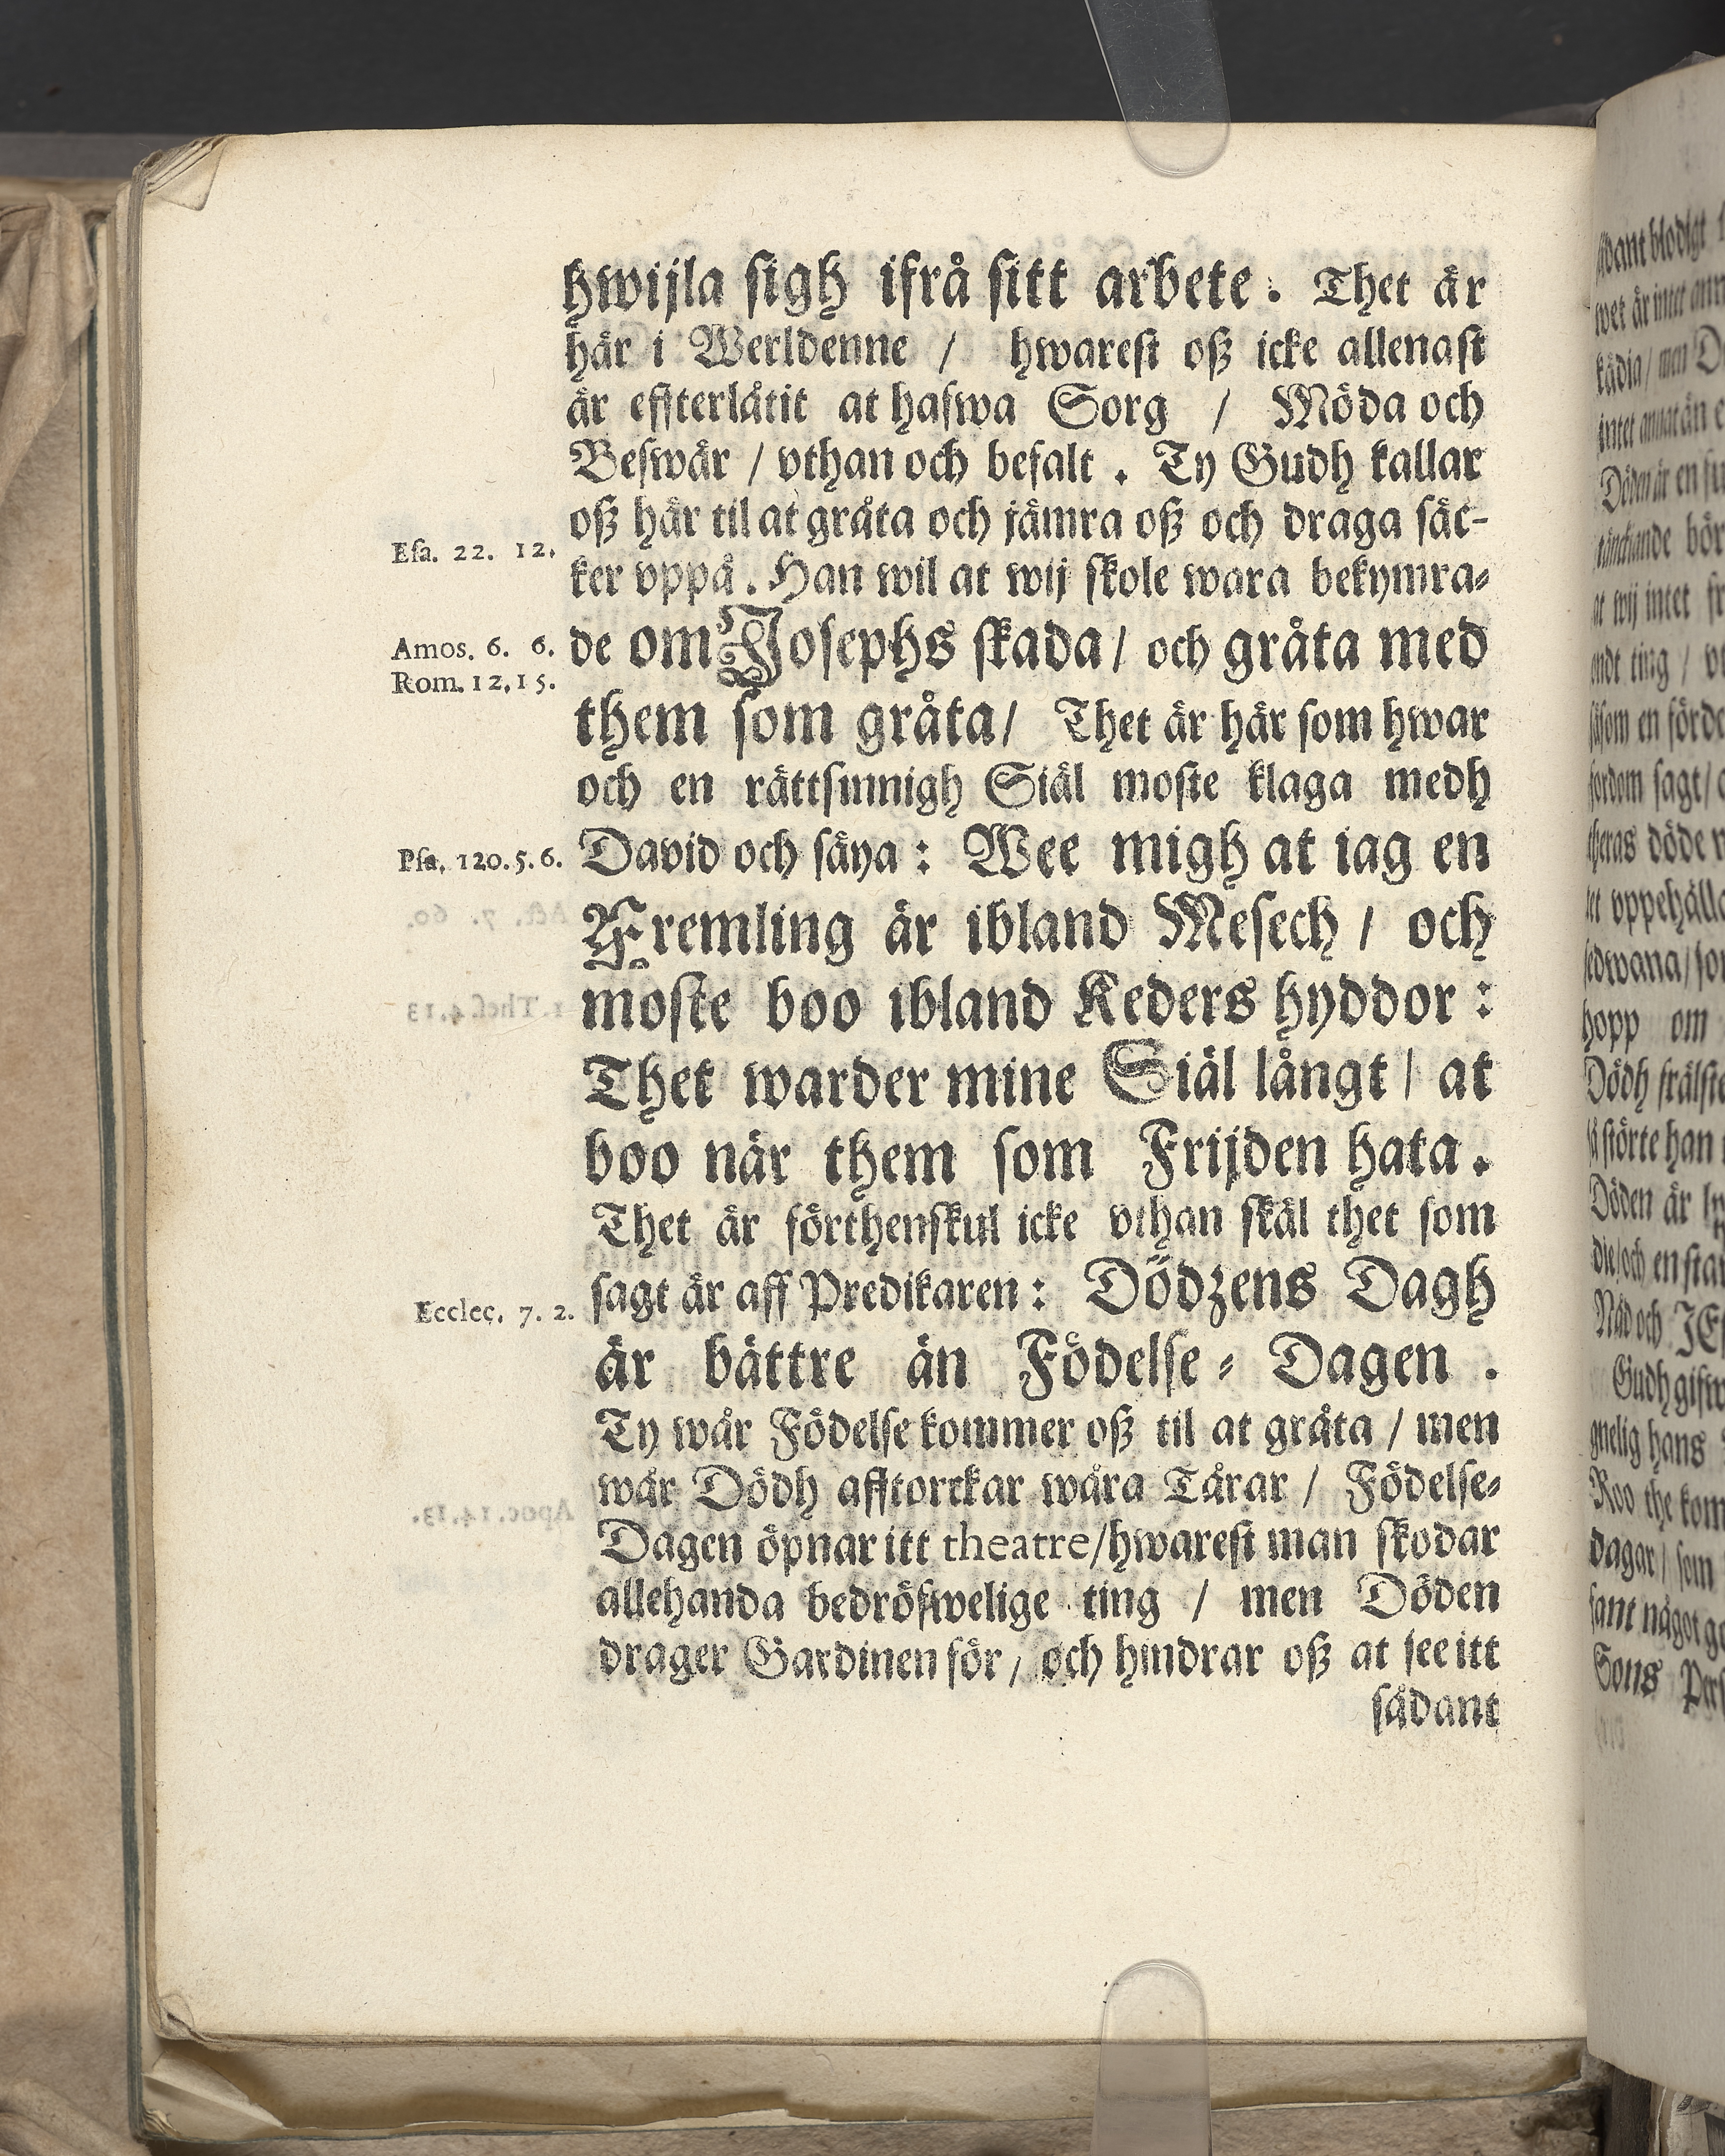 hwijla sigh ifrå sitt arbete. Thet är
här i Werldenne / hwarest oß icke allenast
är effterlåtit at hafwa Sorg / Möda och
Beswär / vthan och befalt. Ty Gudh kallar
oß här til at gråta och jämra oß och draga säc-
Esa. 22. 12.
ker vppå. Han wil at wij skole wara bekymra-
Amos. 6. 6.
de om Josephs skada / och gråta med
Rom. 12, 15.
them som gråta / Thet är här som hwar
och en rättsinnigh Siäl moste klaga medh
Psa. 120. 5. 6.
David och säya: Wee migh at iag en
Fremling är ibland Mesech / och
moste boo ibland Keders hyddor:
Thet warder mine Siäl långt / at
boo när them som Frijden hata.
Thet är förthenskul icke vthan skäl thet som
Eccles. 7. 2.
sagt är aff Predikaren: Dödzens Dagh
är bättre än Födelse-Dagen.
Ty wår Födelse kommer oß til at gråta / men
wår Dödh afftorckar wåra Tårar / Födelse-
Dagen öpnar itt theatre / hwarest man skodar
allehanda bedröfwelige ting / men Döden
drager Gardinen för / och hindrar oß at see itt
sådant